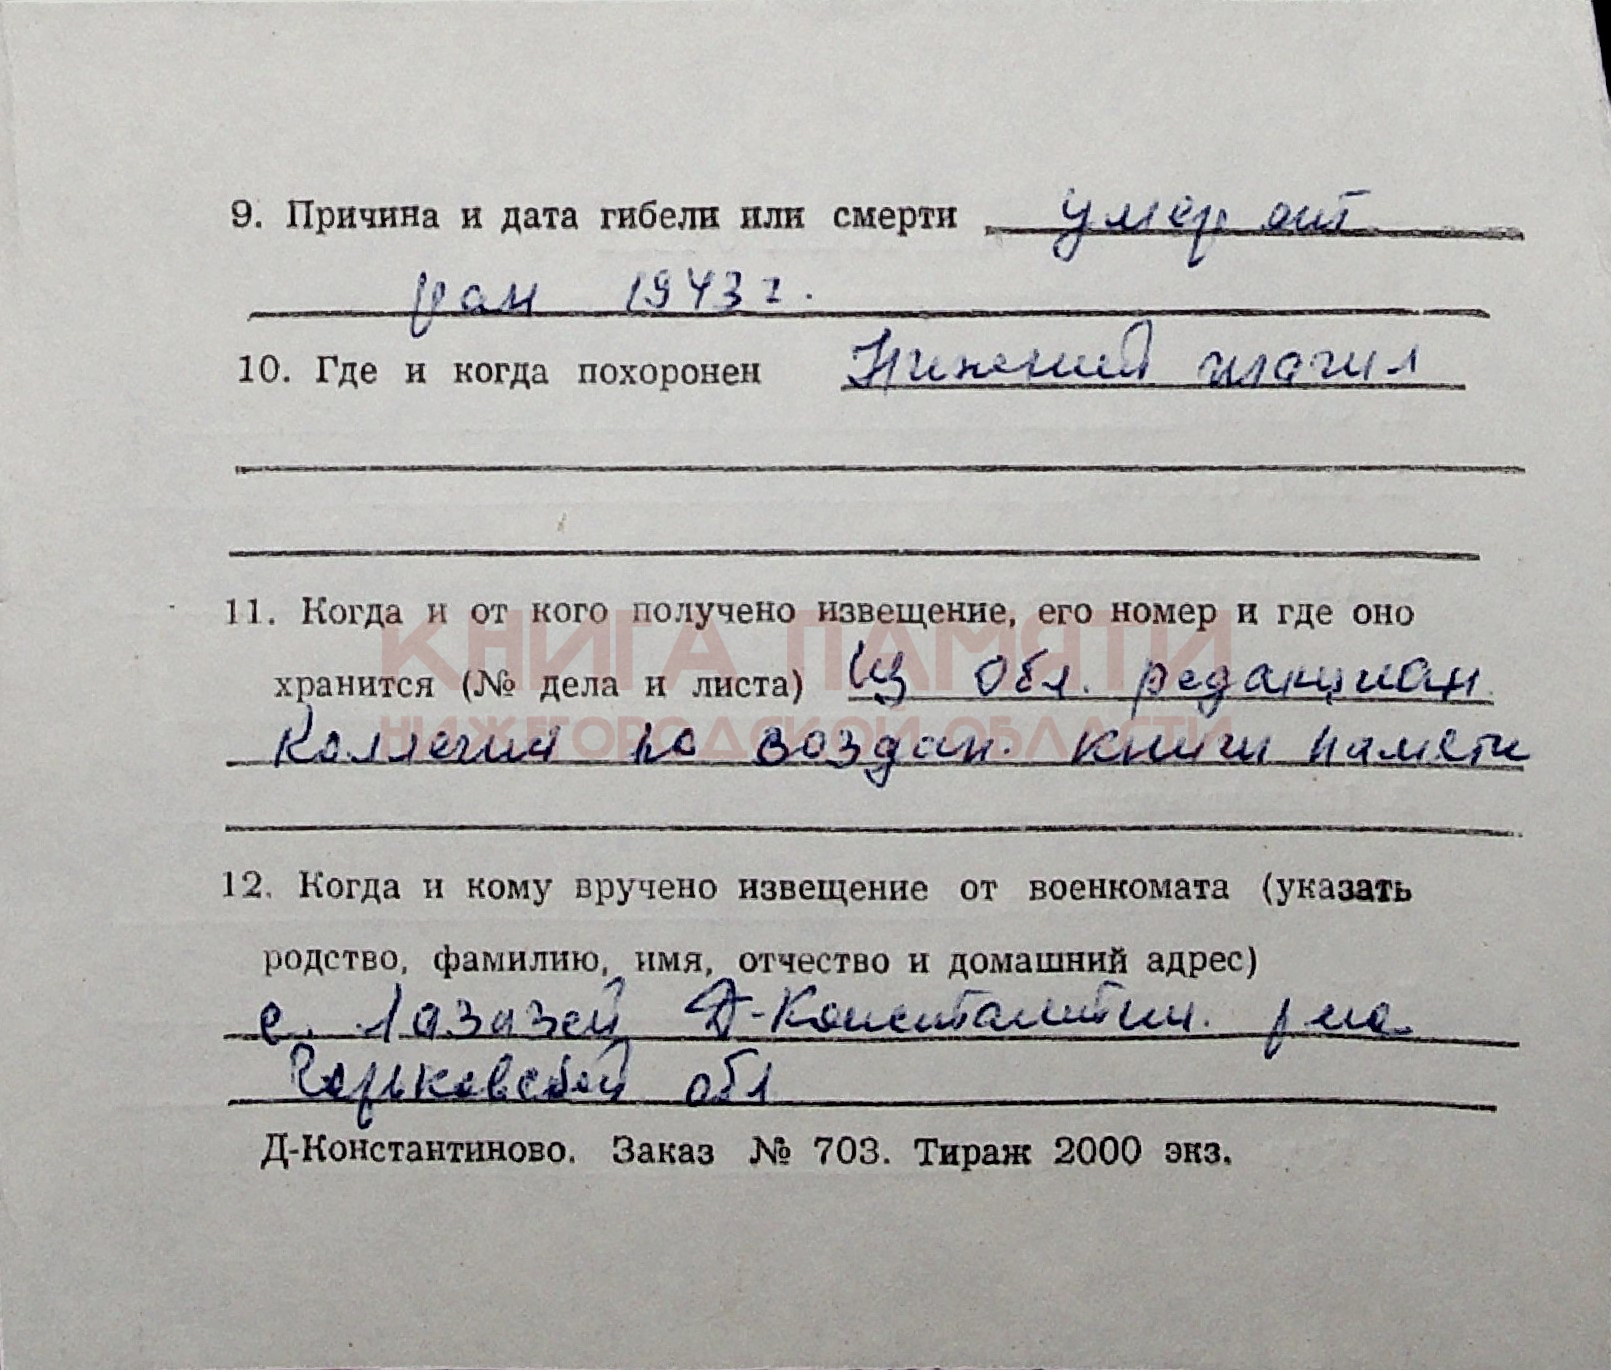 9. Причина и дата гибели или смерти умер от
ран 1943 г.
10. Где и когда похоронен Нижний тагил
11. Когда и от кого получено извещение, его номер и где оно
КНИГА ПАМЯТИ
хранится (№ дела и листа) Из Обл. редакцион.
НИЖЕГОРОДСКОЙ ОБЛАСТИ
Коллегия по создан. книги памяти
12. Когда и кому вручено извещение от военкомата (указать
родство, фамилию, имя, отчество и домашний адрес)
с. Лазазей Д-Константин. р-на
Горьковской обл
Д-Константиново. Заказ № 703. Тираж 2000 экз.